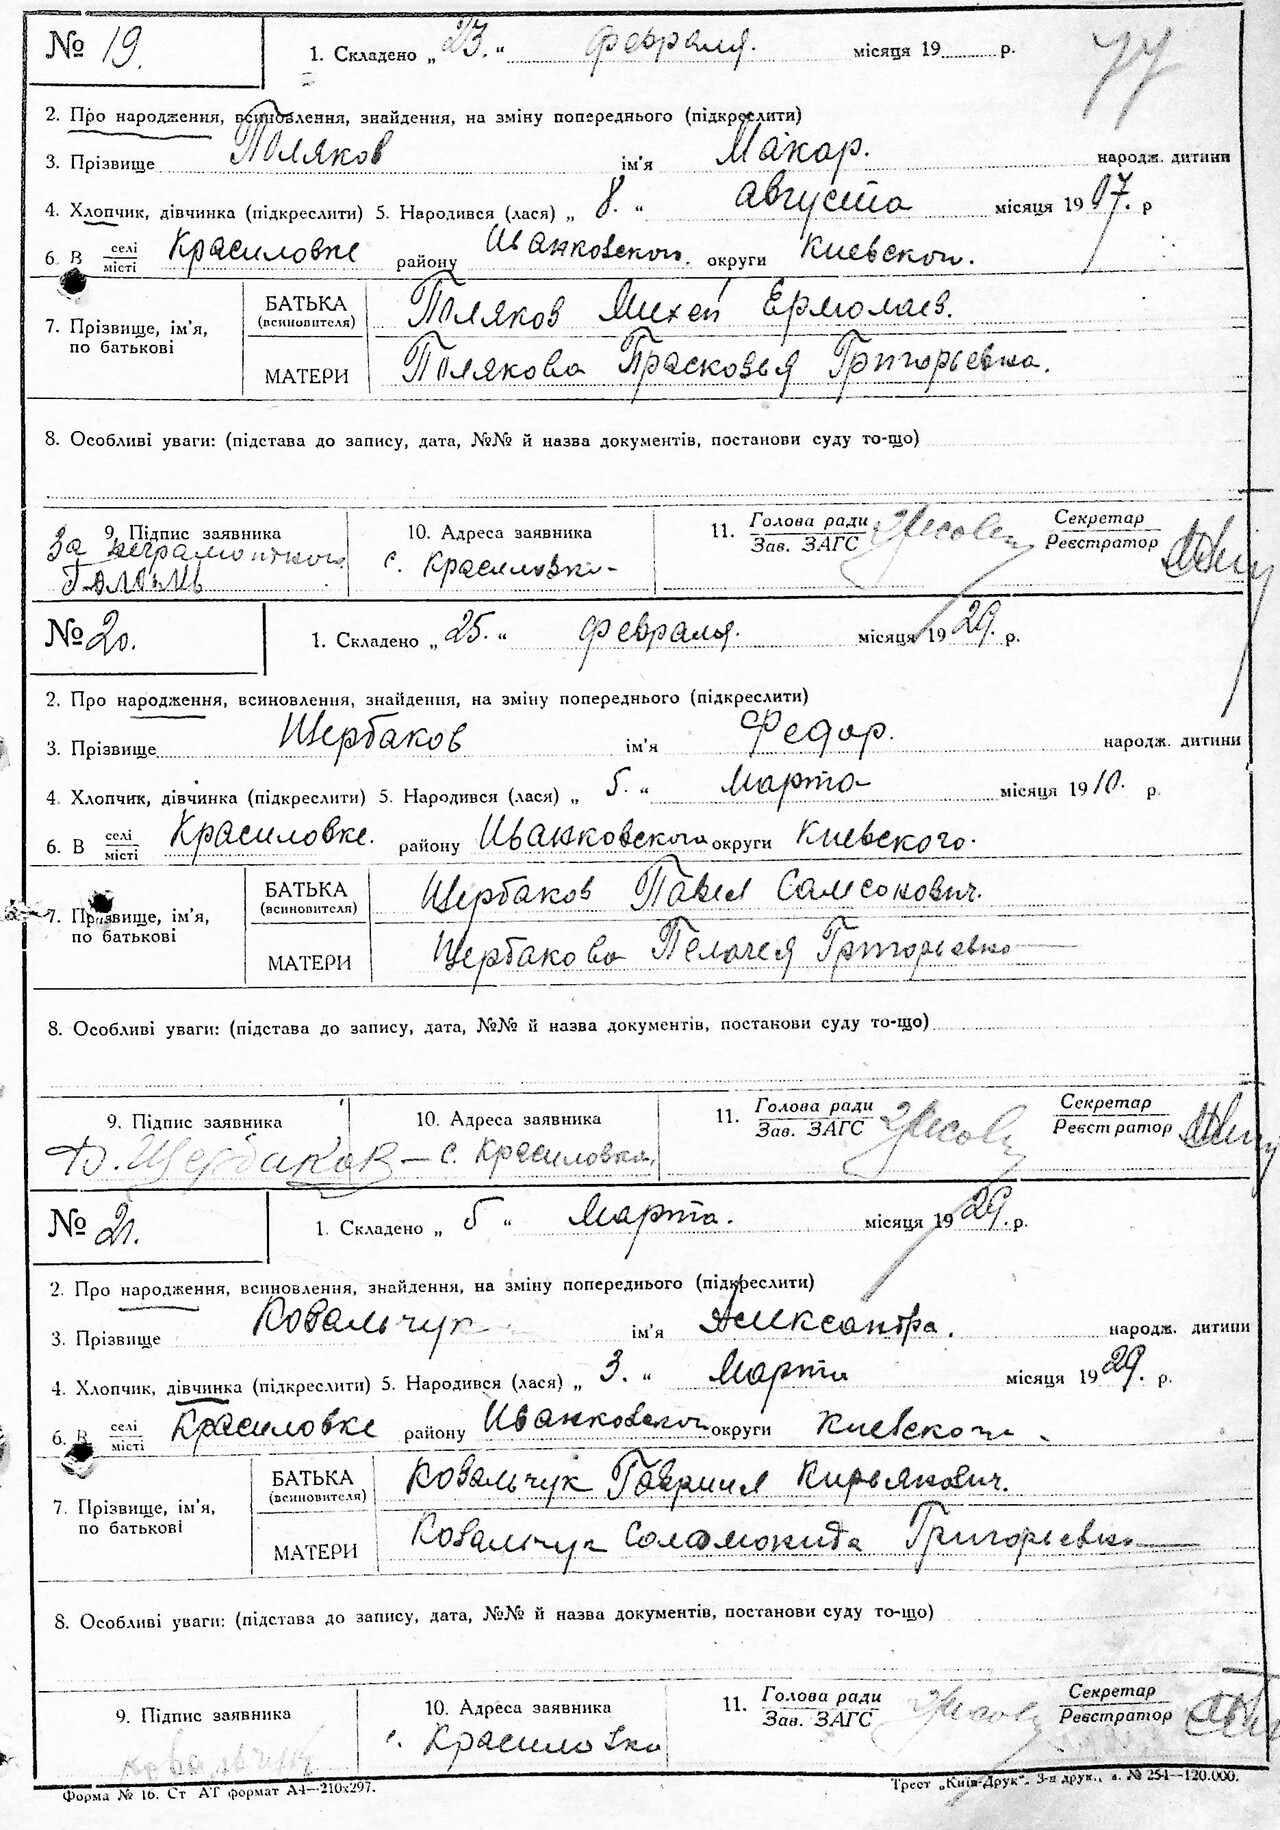 № 19.
1. Складено „ 23. “ февраля. місяця 19 р.
77
2. Про народження, всиновлення, знайдення, на зміну попереднього (підкреслити)
3. Прізвище Поляков ім'я Макар. народж. дитини
4. Хлопчик, дівчинка (підкреслити) 5. Народився (лася) „ 8. “ августа місяця 1907. р
6. В селі/місті Красиловке району Иванковского. округи Киевского.
7. Прізвище, ім'я, по батькові
БАТЬКА (всиновителя) Поляков Михей Ермолаев.
МАТЕРИ Полякова Прасковья Григорьевна.
8. Особливі уваги: (підстава до запису, дата, №№ й назва документів, постанови суду то-що)
9. Підпис заявника
За неграмотного
10. Адреса заявника
с. Красиловка
11. Голова ради / Зав. ЗАГС
Секретар / Реєстратор
№ 20.
1. Складено „ 25. “ февраля. місяця 1929. р.
2. Про народження, всиновлення, знайдення, на зміну попереднього (підкреслити)
3. Прізвище Щербаков ім'я Федор. народж. дитини
4. Хлопчик, дівчинка (підкреслити) 5. Народився (лася) „ 5. “ Марта місяця 1910. р.
6. В селі/місті Красиловке. району Иванковского округи Киевского.
7. Прізвище, ім'я, по батькові
БАТЬКА (всиновителя) Щербаков Павел Самсонович.
МАТЕРИ Щербакова Пелагея Григорьевна
8. Особливі уваги: (підстава до запису, дата, №№ й назва документів, постанови суду то-що)
9. Підпис заявника
Щербаков
10. Адреса заявника
с. Красиловка,
11. Голова ради / Зав. ЗАГС
Секретар / Реєстратор
№ 21.
1. Складено „ 5 “ Марта. місяця 1929. р.
2. Про народження, всиновлення, знайдення, на зміну попереднього (підкреслити)
3. Прізвище Ковальчук ім'я Александра. народж. дитини
4. Хлопчик, дівчинка (підкреслити) 5. Народився (лася) „ 3. “ Марта місяця 1929. р.
6. В селі/місті Красиловке району Иванковского округи Киевского
7. Прізвище, ім'я, по батькові
БАТЬКА (всиновителя) Ковальчук Гавриил Кирьякович.
МАТЕРИ Ковальчук Соломонида Григорьевна
8. Особливі уваги: (підстава до запису, дата, №№ й назва документів, постанови суду то-що)
9. Підпис заявника
Ковальчук
10. Адреса заявника
с. Красиловка
11. Голова ради / Зав. ЗАГС
Секретар / Реєстратор
Форма № 16. Ст АТ формат А4—210х297.
Трест „Київ-Друк“. 3-я друк., з. № 254—120.000.